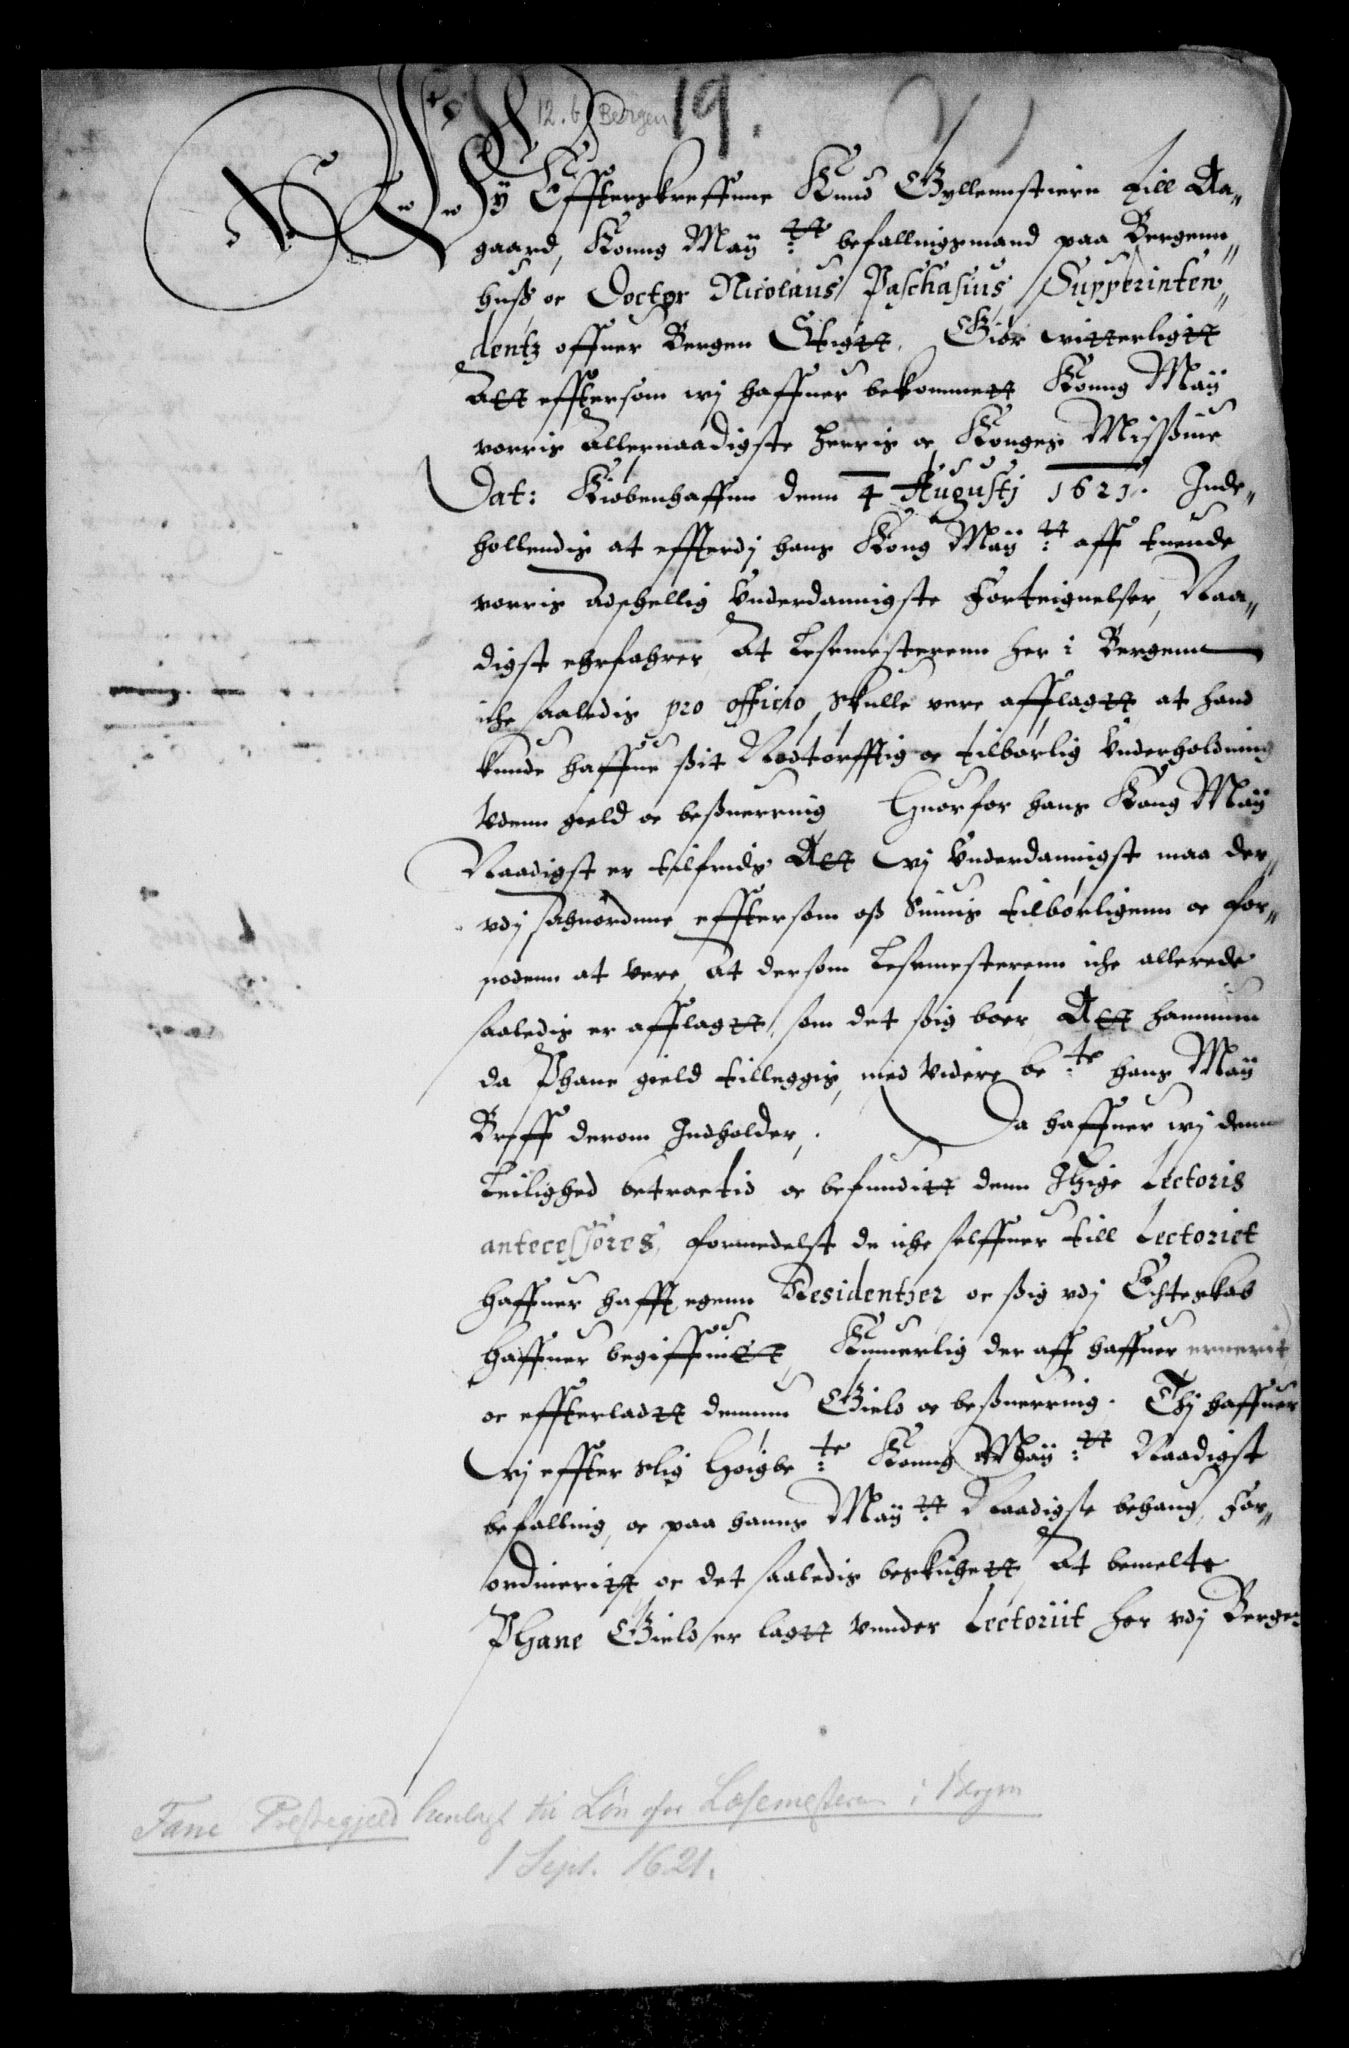 12. b Bergen 19.
Wy Effterskreffune Knud Gyllennstiern till Aa„
gaard, Konng Maÿ:tt befallingsmand paa Bergenn„
huß oc Doctor Nicolaus Paschasius, Supperinten„
dentz offuer Bergen Stigtt, Giør witterligtt
Att efftersom wj haffuer bekommett Konng Maÿ
vorris Allernaadigste Herris oc Konges Missiue
Dat: Kiøbenhaffnn denn 4 Augustj 1621. Inde„
hollendis at effterdj hans Kong Maÿ:tt aff tuende
vorris adschellig Vnderdannigste Forteignelser, Naa„
digst ehrfahrer, At Lesemesterenn her i Bergenn
iche saaledis pro officio skulle vere afflagtt, at hand
kunde haffue ßit Nødtørfftig oc tilbørlig Vnderholdning
Vdenn gield oc beßuerring Huorfor hans Kong Maÿ
Naadigst er tilfreds Att wj Vnderdannigst maa der„
vdj forordne efftersom oß Siunis tilbørligenn oc for„
nødenn at vere, At dersom Lesemesterenn iche allerede
saaledis er afflagtt, som det ßig bøer, Att hannum
da Phane gield tilleggis, med videre be:te hans Maÿ
Breff derom Indholder, Da haffuer wj denn
Leilighed betractid oc befunditt denn Itzige Lectoris
antecessores, formedelst de iche selffuer till Lectoriet
haffuer hafft egenn Residentzer oc ßig vdj Echteskab
haffuer begiffuitt, Kummerlig der aff haffuer erneritt
oc effterladtt dennum Gield oc beßuerring. Thj haffuer
wj effter slig Høigbe:te Konng Maÿ:tt Naadigst
befalling, oc paa hanns Maÿ:tt Naadigste behaug, For„
ordineritt oc det saaledis beskickett, At bemelte
Phane Gield er lagtt vnnder Lectoriit her vdj Bergen
Fane Prestegjeld henlagt til Løn for Læsemesteren i Bergen
1 Sept. 1621.